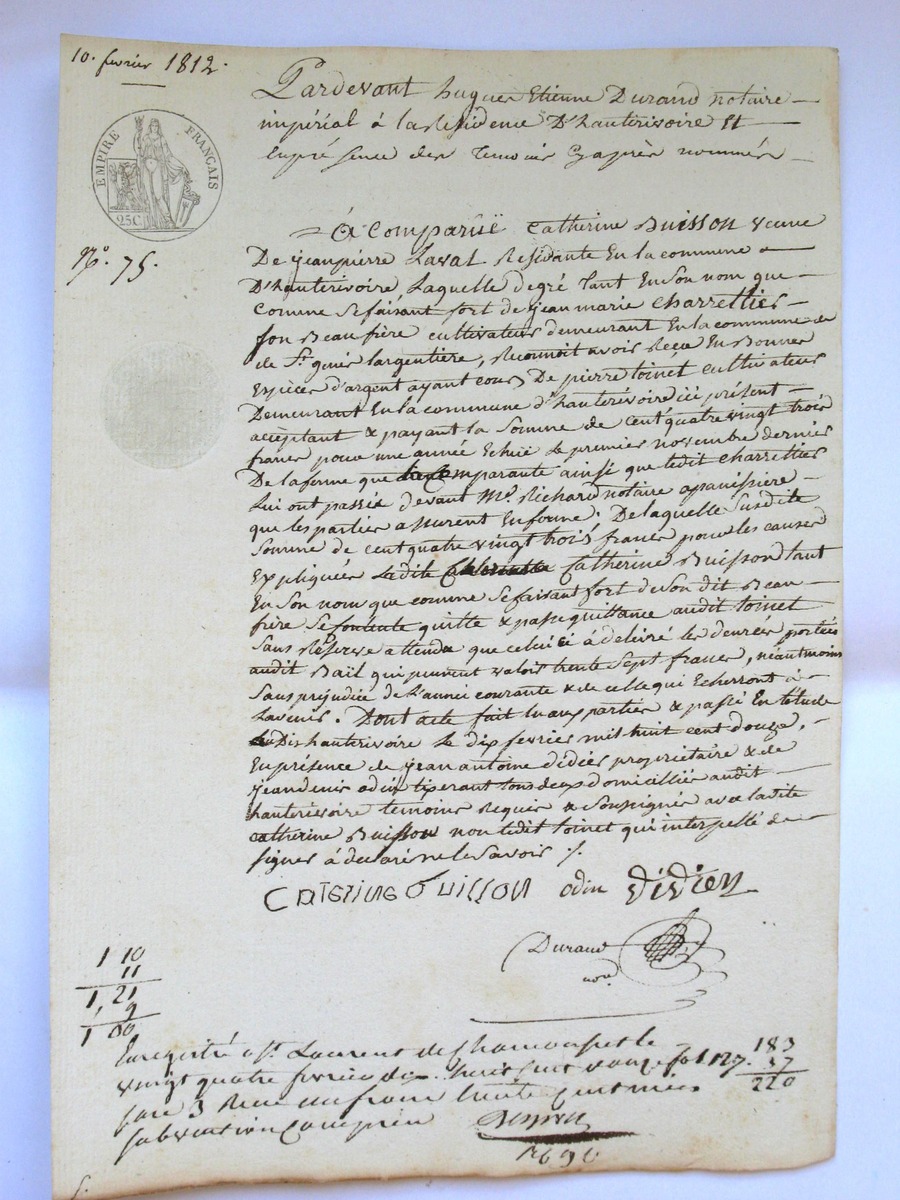 10. fevrier 1812.
EMPIRE FRANÇAIS
25C
N.° 75.
Pardevant hugues Etienne Durand notaire
impérial á la Residence D'hauterivoire Et
En présence des temoins Cyaprès nommés
A Comparüe Catherine Buisson veuve
De jean pierre Laval Residante En la commune
D'hauterivoire Laquelle degré tant En Son nom que
Comme Se faisant fort de jean marie charrettier
Son Beau frère cultivateur demeurant En la commune de
de St. genis largentière, Reconnoit avoir Recu En Bonnes
Espèces d'argent ayant cours De pierre toinet cultivateur
Demeurant En la commune d'hauterivoire ici présent
acceptant & payant la Somme de cent quatre vingt trois
francs pour une année Echüe Le premier novembre dernier
De la ferme que comparante ainsi que ledit charrettier
Lui ont passée devant Me. Richard notaire apanissiere
que les parties assurent En forme; De laquelle Susdite
Somme de cent quatre vingt trois francs pour les causes
Expliquées Ladite Catherine Buisson tant
En Son nom que comme Se faisant fort de Son dit Beau
frère Se contente quitte & passe quittance audit toinet
Sans Réserve attendu que celui ci à delivré les denrées portées
audit Bail qui peuvent valoir trente Sept francs, néantmoins
Sans préjudice de L'année courante & de celle qui Echerront à
L'avenir. Dont acte fait lu aux parties & passé En letude
audit hauterivoire Le dix fevrier mil huit cent douze,
En présence de jean antoine didier propriétaire & de
jean denis odin tiserant tous deux domicilliés audit
hauterivoire temoins Requis & Soussignés avec ladite
Catherine Buisson non ledit toinet qui interpellé de
Signer à declaré ne le Savoir ./.
CATERINE BUISSON odin DIDIER
Durand
not.
1 10
11
1, 21
, 9
1 00
Enregistré a St. Laurent de Chamousset le
vingt quatre fevrier dix huit cent douze fol 127.
case 3 Recu un franc trente centimes
subvention Comprise
183
37
220